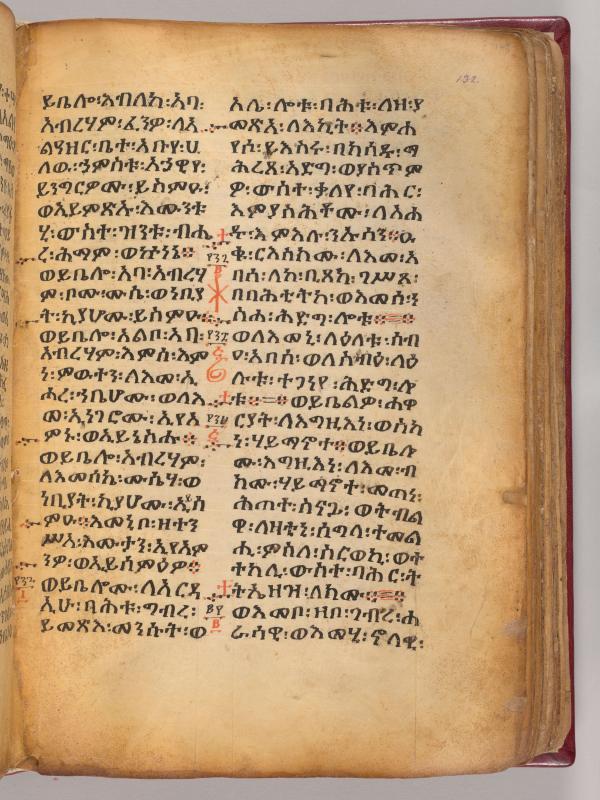 132.
ይቤሎ፡እብለከ፡አባ፡
አብርሃም፡ፈንዎ፡ለአ
ልዓዛር፡ቤተ፡አቡየ፡ሀ
ለዉ፡ኀምስቱ፡አኃዊየ፡
ይንግርዎሙ፡ይስምዑ፡
ወኢይምጽኡ፡እሙንቱ
ሂ፡ውስተ፡ዝንቱ፡ብሔ
ረ፡ሕማም፡ወኵነኔ፨
ወይቤሎ፡አባ፡አብርሃ
ም፡ቦሙ፡ሙሴ፡ወነቢያ
ት፡ኪያሆሙ፡ይስምዑ፨
ወይቤሎ፡አልቦ፡አባ፡
አብርሃም፡እምከ፡እም
ነ፡ምውታን፡ለእመ፡ኢ
ሖረ፡ኀቤሆሙ፡ወለእ
መ፡ኢነገሮሙ፡ኢየአ
ምኑ፡ወኢይኔስሑ፨
ወይቤሎ፡አብርሃም፡
ለእመሰኬ፡ሙሴሃ፡ወ
ነቢያት፡ኪያሆሙ፡ኢስ
ምዑ፡እመኒ፡ቦ፡ዘተን
ሥአ፡እሙታን፡ኢየአም
ንዎ፡ወኢይሰምዕዎ፨
ወይቤሎሙ፡ለአርዳ
ኢሁ፡ባሕቱ፡ግብረ፡
ይመጽእ፡መንሱት፡ወ
አሌ፡ሎቱ፡ባሕቱ፡ለዘ፡ያ
መጽኣ፡ለእኪት፨እምሐ
የሶ፡ይእስሩ፡በክሳዱ፡ማ
ሕረጸ፡አድግ፡ወያስጥም
ዎ፡ውስተ፡ቃለየ፡ባሕር፡
እምያስሕቶሙ፡ለአሐ
ዱ፡እምእሉ፡ንኡሳን፨ዑ
ቁ፡ርእስክሙ፡ለእመ፡አ
በሰ፡ለከ፡ቢጽከ፡ገሥጾ፡
በባሕቲትከ፡ወእመሰ፡ነ
ስሐ፡ሕድግ፡ሎቱ፨
ወለእመኒ፡ለዕለቱ፡ስብ
ዕ፡አበሰ፡ወለስብዕ፡ለዕ
ሉቱ፡ተጋነየ፡ሕድግ፡ሎ
ቱ፨ወይቤልዎ፡ሐዋ
ርያት፡ለእግዚእነ፡ወስከ
ነ፡ሃይማኖተ፨ወይቤሎ
ሙ፡እግዚእነ፡ለእመ፡ብ
ክሙ፡ሃይማኖተ፡መጠነ፡
ሕጠተ፡ስናጴ፡ወትብል
ዋ፡ለዛቲ፡ሰግላ፡ተመል
ሒ፡ምስለ፡ስርወኪ፡ወት
ተከሊ፡ውስተ፡ባሕር፡ት
ትኤዘዝ፡ለክሙ፨
ወእመቦ፡ዘቦ፡ገብረ፡ሐ
ራሳዊ፡ወእመሂ፡ኖላዊ፡